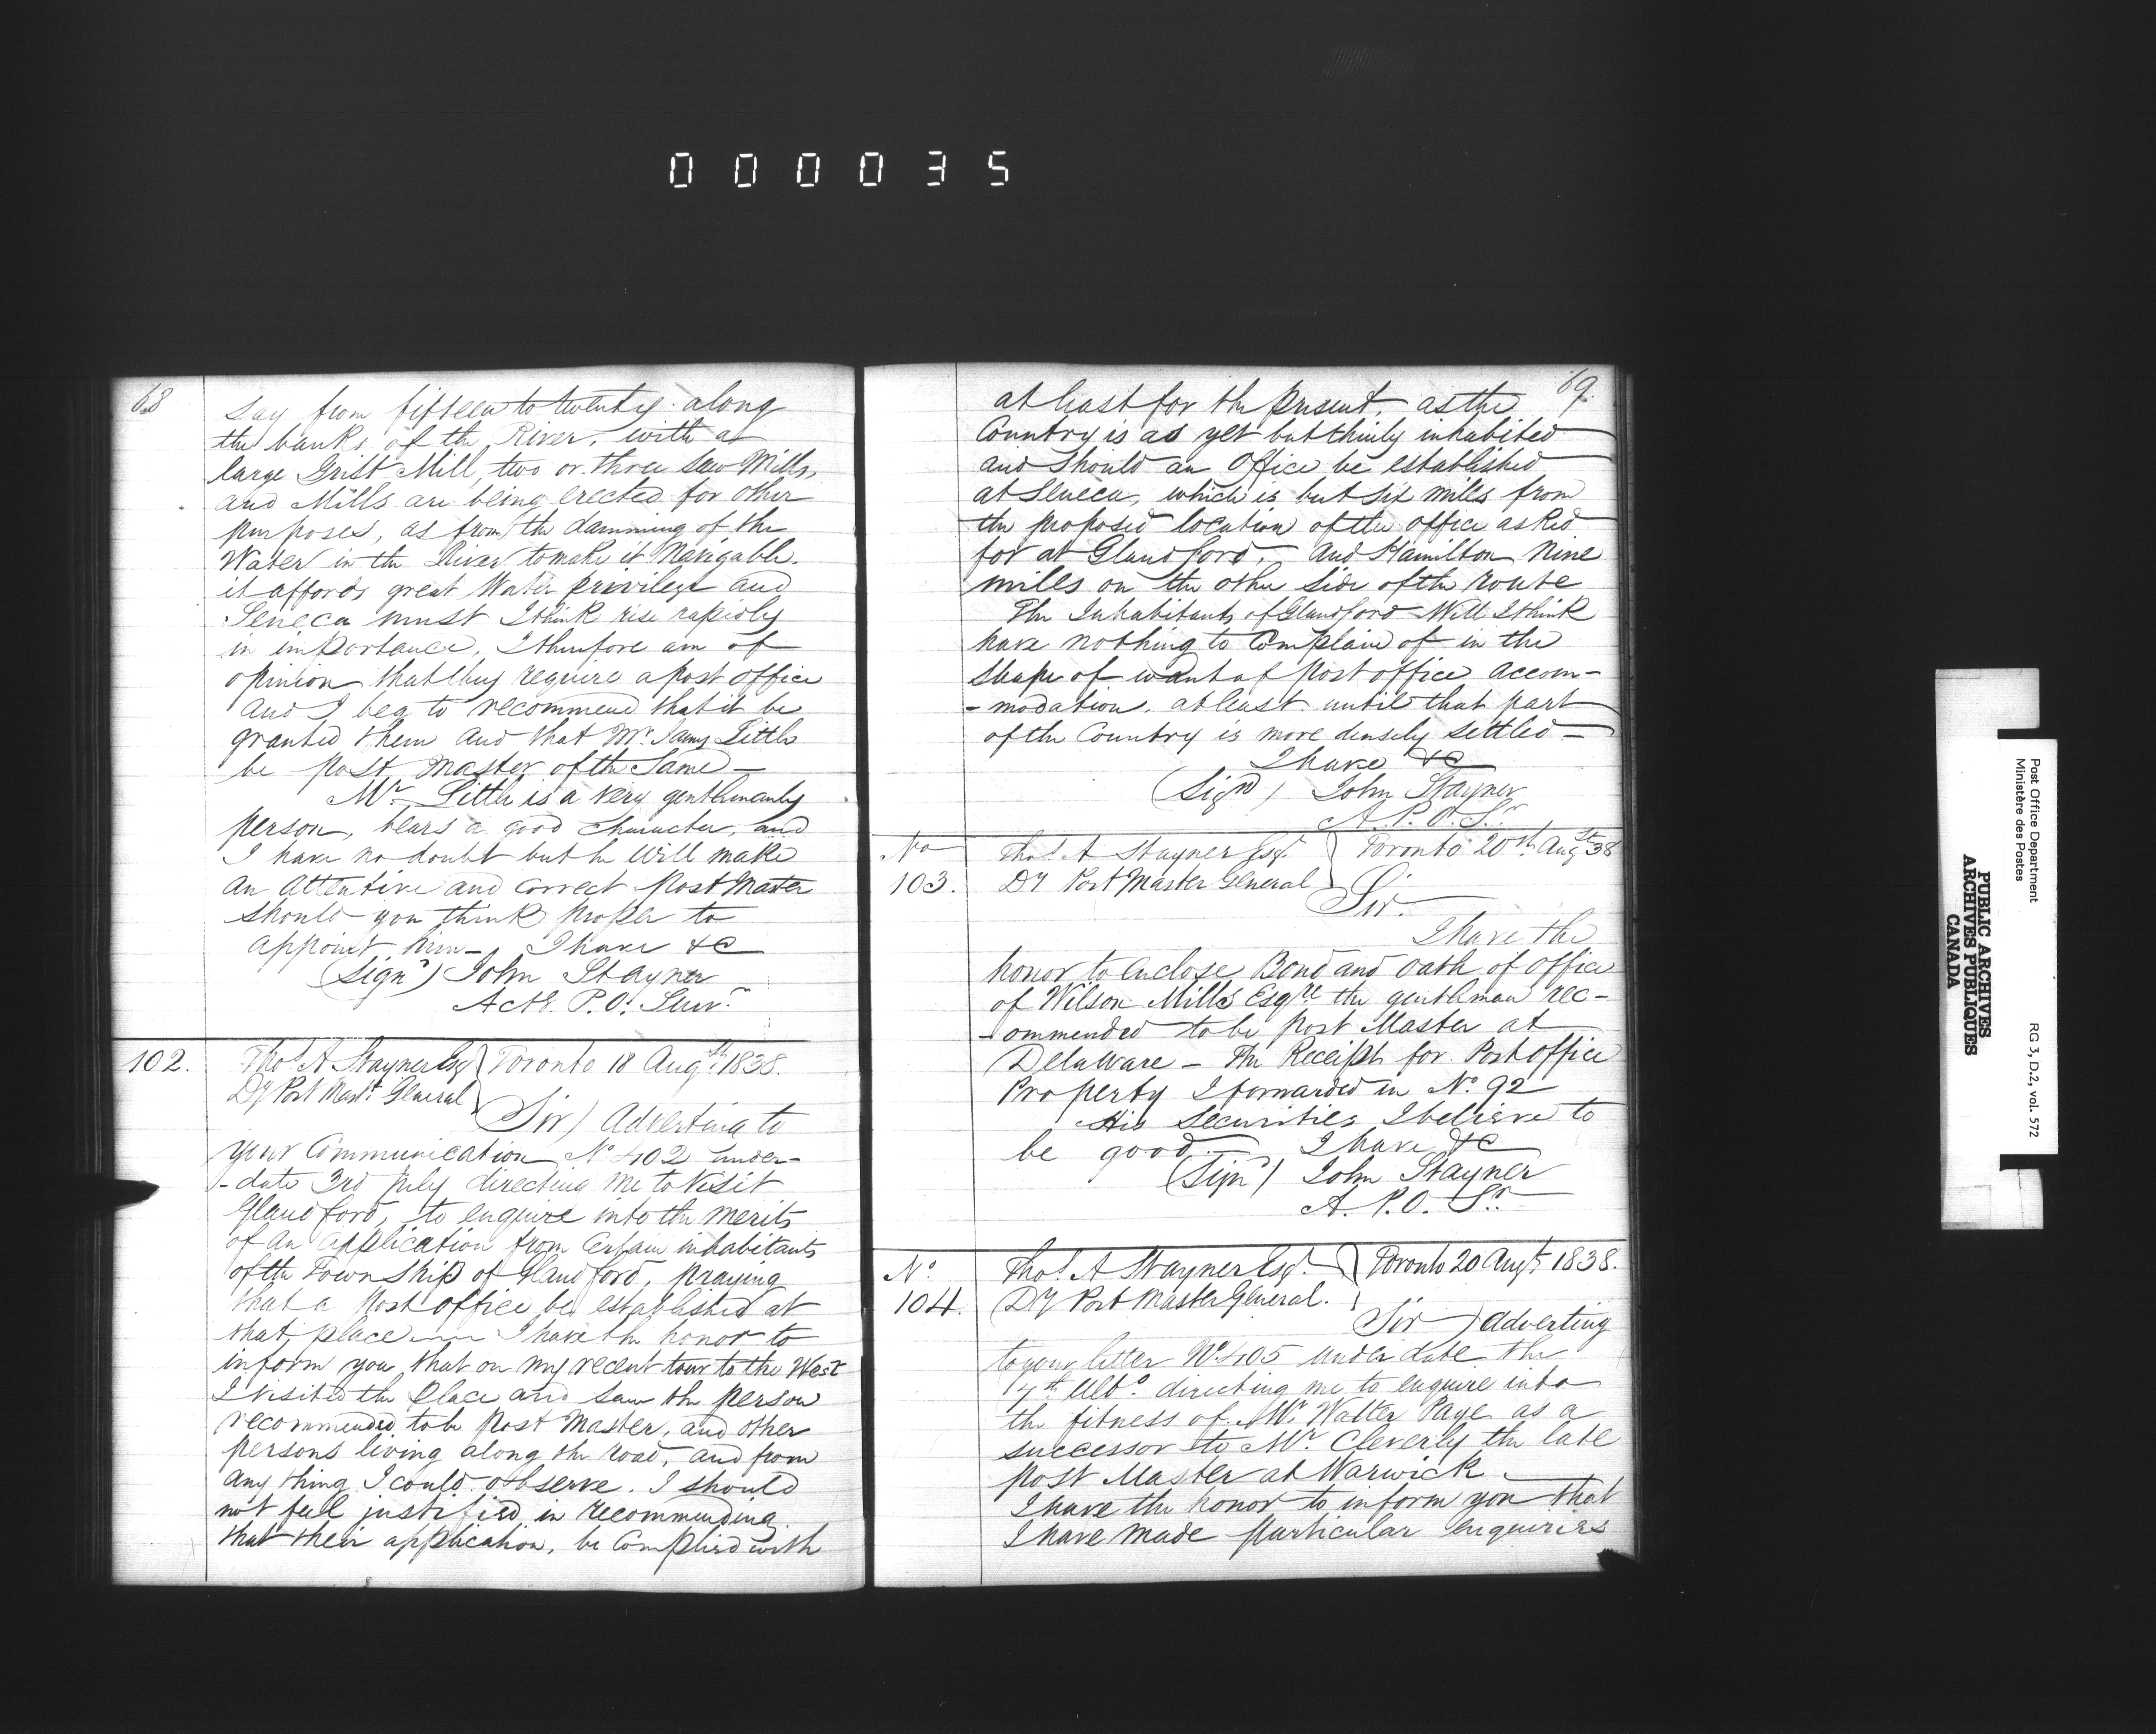 000035
68
Say from fifteen to twenty along
the banks of the River, with a
large Grist Mill, two or three Saw Mills,
and Mills are being erected for other
purposes, as from the damming of the
Water in the River to make it Navigable.
it affords great Water privilege and
Seneca must I think rise rapidly
in importance, I therefore am of
opinion that they require a post office
and I beg to recommend that it be
granted them and that Mr. James Little
be post Master of the Same —
Mr. Little is a very gentlemanly
person, bears a good character, and
I have no doubt but he Will make
an attentive and correct Post Master
should you think proper to
appoint him — I have &c
(Sign'd) John Stayner
Actg. P.O. Surv.r
102. Thos A Stayner Esq } Toronto 18 Augth 1838.
Dy Post Mastr General
Sir) Adverting to
your Communication No 402 under-
-date 3rd July directing me to Visit
Glandford, to enquire into the merits
of an application from Certain inhabitants
of the Township of Glandford, praying
that a Post office be established at
that place — I have the honor to
inform you that on my recent tour to the West
I visited the Place and saw the person
recommended to be post Master, and other
persons living along the road, and from
any thing I could observe. I should
not feel justified in recommending
that their application, be Complied with
69.
at least for the present, as the
Country is as yet but thinly inhabited
and Should an Office be established
at Seneca, which is but Six miles from
the proposed location of the office asked
for at Glandford, and Hamilton Nine
miles on the other Side of the route
The Inhabitants of Glandford Will I think
have nothing to Complain of in the
shape of want of Post office accom-
-modation. at least until that part
of the Country is more densely settled —
I have &c
(Sign'd) John Stayner
A. P. O. Sr.
No Thos. A Stayner Esqr. } Toronto 20st. Augst 38
103. Dy Post Master General
Sir.
I have the
honor to enclose Bond and Oath of Office
of Wilson Mills Esqre the gentleman rec-
-ommended to be Post Master at
Delaware — The Receipt for Post office
Property I forwarded in No. 92
His Securities I believe to
be good — I have &c
(Sign'd) John Stayner
A. P. O. Sr.
No. Thos. A Stayner Esqr. } Toronto 20 Augt. 1838.
104. Dy Post Master General.
Sir) Adverting
to your letter No. 405 under date the
17th Ulto. directing me to enquire into
the fitness of Mr. Walter Paye as a
successor to Mr. Cleverly the late
Post Master at Warwick —
I have the honor to inform you that
I have made particular enquiries
Post Office Department
Ministère des Postes
RG 3, D.2, vol. 572
PUBLIC ARCHIVES
ARCHIVES PUBLIQUES
CANADA